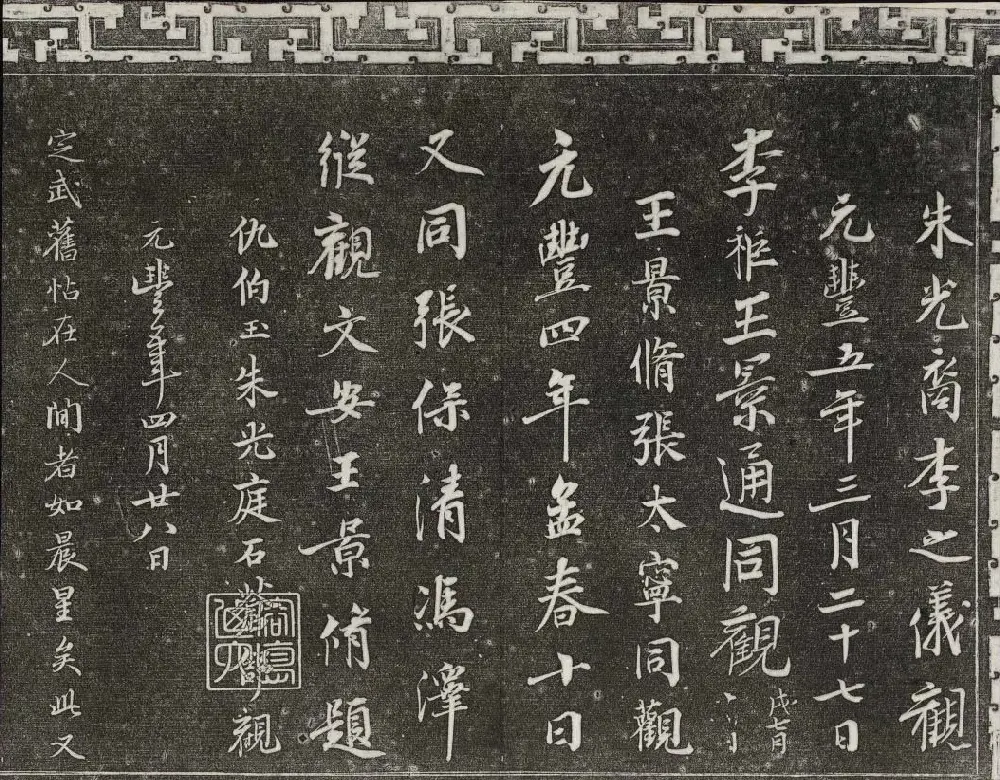 朱光裔李之儀觀
元豐五年三月二十七日
李秬王景通同觀
戊七月
王景脩張太寧同觀
元豐四年孟春十日
又同張保清馮澤
縱觀文安王景脩題
仇伯玉朱光庭石蒼舒觀
元豐年四月廿八日
定武舊帖在人間者如晨星矣此又